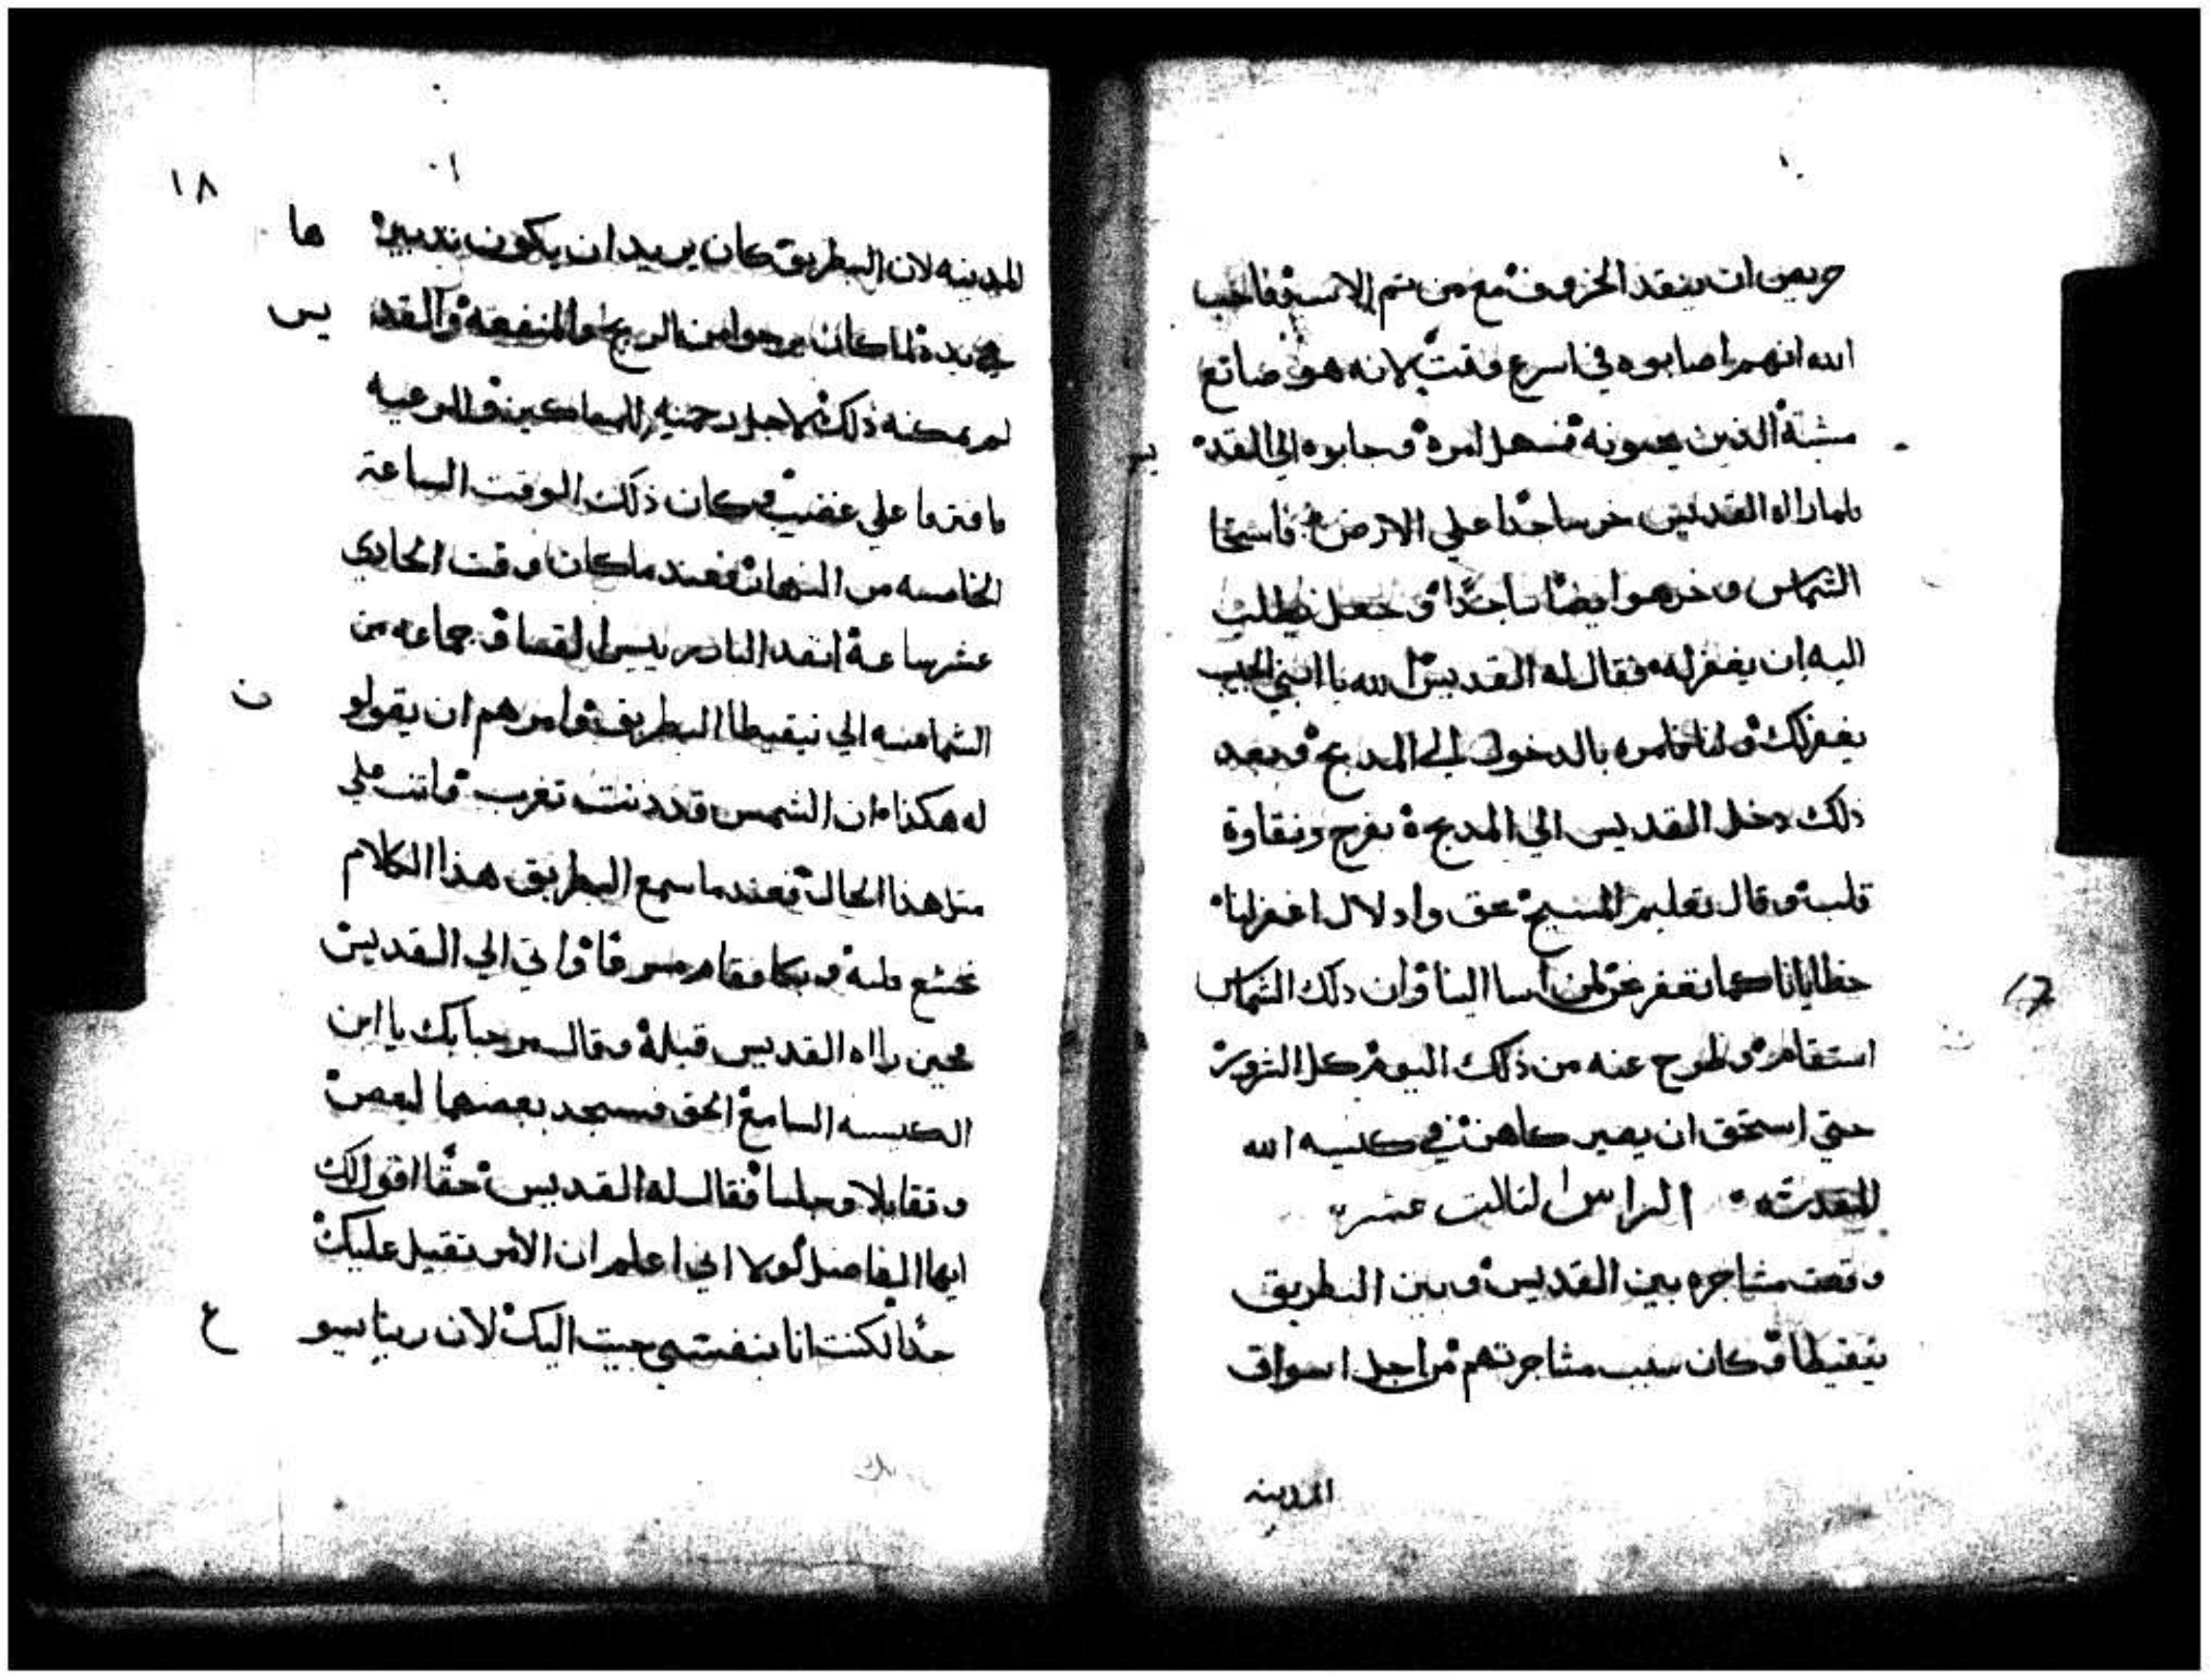 حريص ان ينقد الخروف مع من يتم الاسد فاحب
الله انهم اصابوه في اسرع وقت لانه هو صانع
مشية الذين يحبونه فسهل امره وجابوه الي القد يس
فلما راه القديس خر ساجدا علي الارض فاستحا
الشماس وخر هو ايضا ساجدا وجعل يطلب
اليه ان يغفر له فقال له القديس الله يا ابني الحبيب
يغفر لك ولنا فامره بالدخول الي المدبح وبعد
دلك دخل القديس الي المدبح بفرح ونقاوة
قلب وقال تعليم المسيح بحق وادلال اغفر لنا
خطايانا كما نغفر نحن لمن اسا الينا وان دلك الشماس
استقام وطرح عنه من ذلك اليوم كل الشرور
حتي استحق ان يصير كاهن في كنيسه الله
المقدسه الراس الثالث عشر
وقعت مشاجره بين القديس وبين البطريق
نيقيطا وكان سبب مشاجرتهم من اجل اسواق
المدينه
17
١٨
المدينه لان البطريق كان يريد ان يكون تدبيرها
في يده لما كان يرجوا من الربح والمنفعه والقديس
لم يمكنه ذلك لاجل رحمته للمساكين والرعيه
فافترقا علي غضب وكان ذلك الوقت الساعة
الخامسه من النهار فعند ما كان وقت الحادي
عشر ساعة انفد البار ريس القصاد جماعه من
الشمامسه الي نيقيطا البطريق وامرهم ان يقولون
له هكذا ان الشمس قد دنت تغرب وانت علي
مثل هذا الحال فعند ما سمع البطريق هذا الكلام
تخشع قلبه وبكا وقام مسرعا واتي الي القديس
فحين راه القديس قبله وقال مرحبا بك يا ابن
الكنيسه السامع الحق فسجد بعضهما لبعض
وتقابلا وجلسا فقال له القديس حقا اقول لك
ايها الفاضل لولا اني اعلم ان الامر تقيل عليك
جدا لكنت انا بنفسي جيت اليك لان ربنا يسوع